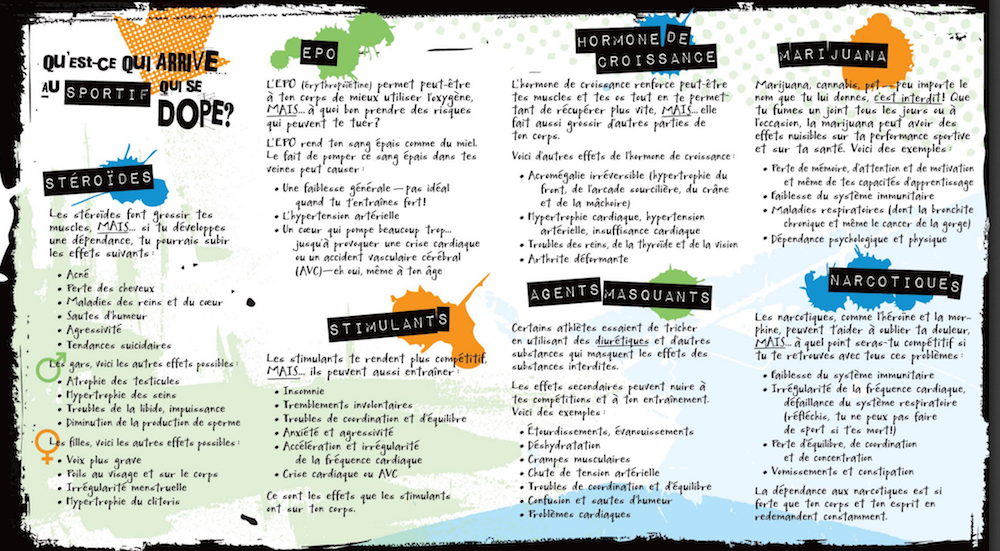 QU'EST-CE QUI ARRIVE
AU SPORTIF QUI SE
DOPE?
STÉROÏDES
Les stéroïdes font grossir tes
muscles, MAIS... si tu développes
une dépendance, tu pourrais subir
les effets suivants :
• Acné
• Perte des cheveux
• Maladies des reins et du cœur
• Sautes d'humeur
• Agressivité
• Tendances suicidaires
Les gars, voici les autres effets possibles :
• Atrophie des testicules
• Hypertrophie des seins
• Troubles de la libido, impuissance
• Diminution de la production de sperme
Les filles, voici les autres effets possibles :
• Voix plus grave
• Poils au visage et sur le corps
• Irrégularité menstruelle
• Hypertrophie du clitoris
EPO
L'EPO (érythropoïétine) permet peut-être
à ton corps de mieux utiliser l'oxygène,
MAIS... à quoi bon prendre des risques
qui peuvent te tuer?
L'EPO rend ton sang épais comme du miel.
Le fait de pomper ce sang épais dans tes
veines peut causer :
• Une faiblesse générale — pas idéal
quand tu t'entraînes fort!
• L'hypertension artérielle
• Un cœur qui pompe beaucoup trop...
jusqu'à provoquer une crise cardiaque
ou un accident vasculaire cérébral
(AVC) — eh oui, même à ton âge
STIMULANTS
Les stimulants te rendent plus compétitif,
MAIS... ils peuvent aussi entraîner :
• Insomnie
• Tremblements involontaires
• Troubles de coordination et d'équilibre
• Anxiété et agressivité
• Accélération et irrégularité
de la fréquence cardiaque
• Crise cardiaque ou AVC
Ce sont les effets que les stimulants
ont sur ton corps.
HORMONE DE
CROISSANCE
L'hormone de croissance renforce peut-être
tes muscles et tes os tout en te permettant
tant de récupérer plus vite, MAIS... elle
fait aussi grossir d'autres parties de
ton corps.
Voici d'autres effets de l'hormone de croissance :
• Acromégalie irréversible (hypertrophie du
front, de l'arcade sourcilière, du crâne
et de la mâchoire)
• Hypertrophie cardiaque, hypertension
artérielle, insuffisance cardiaque
• Troubles des reins, de la thyroïde et de la vision
• Arthrite déformante
AGENTS MASQUANTS
Certains athlètes essaient de tricher
en utilisant des diurétiques et d'autres
substances qui masquent les effets des
substances interdites.
Les effets secondaires peuvent nuire à
tes compétitions et à ton entraînement.
Voici des exemples :
• Étourdissements, évanouissements
• Déshydratation
• Crampes musculaires
• Chute de tension artérielle
• Troubles de coordination et d'équilibre
• Confusion et sautes d'humeur
• Problèmes cardiaques
MARIJUANA
Marijuana, cannabis, pot — peu importe le
nom que tu lui donnes, c'est interdit! Que
tu fumes un joint tous les jours ou à
l'occasion, la marijuana peut avoir des
effets nuisibles sur ta performance sportive
et sur ta santé. Voici des exemples :
• Perte de mémoire, d'attention et de motivation
et même de tes capacités d'apprentissage
• Faiblesse du système immunitaire
• Maladies respiratoires (dont la bronchite
chronique et même le cancer de la gorge)
• Dépendance psychologique et physique
NARCOTIQUES
Les narcotiques, comme l'héroïne et la mor-
phine, peuvent t'aider à oublier ta douleur,
MAIS... à quel point seras-tu compétitif si
tu te retrouves avec tous ces problèmes :
• Faiblesse du système immunitaire
• Irrégularité de la fréquence cardiaque,
défaillance du système respiratoire
(réfléchis, tu ne peux pas faire
de sport si t'es mort!)
• Perte d'équilibre, de coordination
et de concentration
• Vomissements et constipation
La dépendance aux narcotiques est si
forte que ton corps et ton esprit en
redemandent constamment.